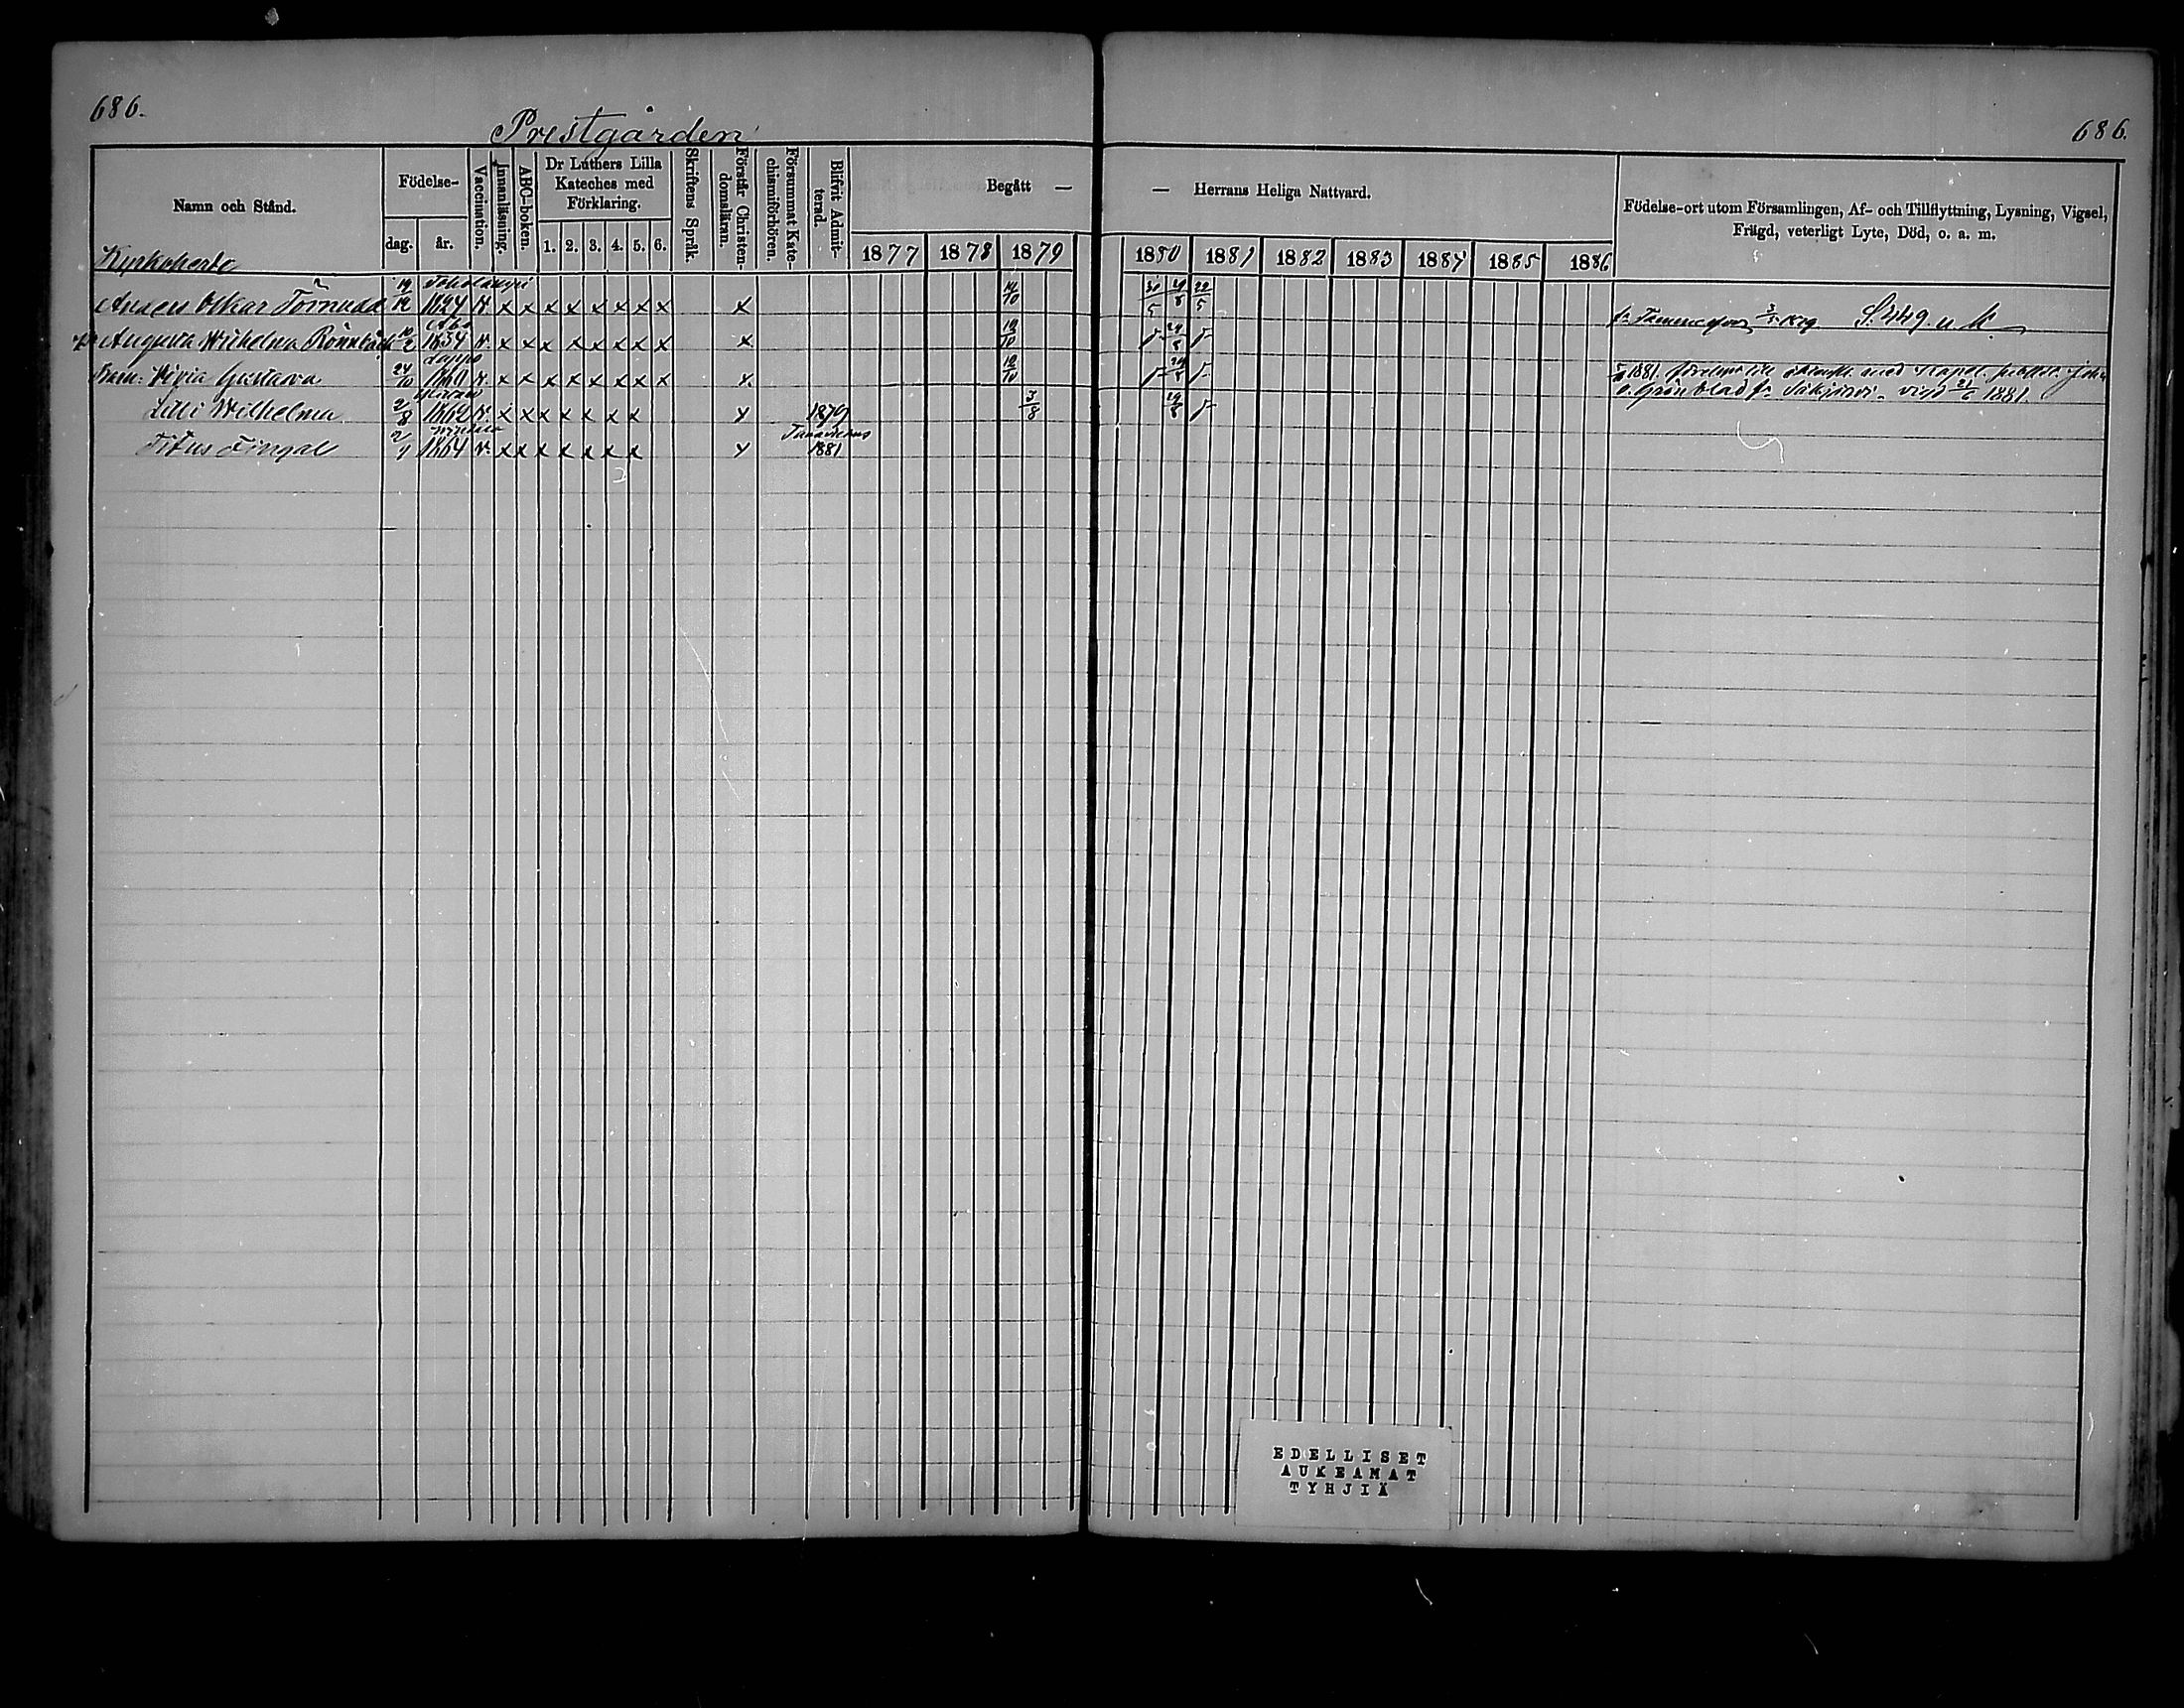 686.
Prestgården
686.
Namn och Stånd.
Födelse-
dag.
år.
Vaccination.
Innanläsning.
ABC-boken.
Dr Luthers Lilla
Kateches med
Förklaring.
1. 2. 3. 4. 5. 6.
Skriftens Språk.
Förstår Christen-
domsläran.
Försummat Kate-
chismiförhören.
Blifvit Admit-
terad.
Begått —
— Herrans Heliga Nattvard.
1877 1878 1879
1880 1881 1882 1883 1884 1885 1886
Födelse-ort utom Församlingen, Af- och Tillflyttning, Lysning, Vigsel,
Frägd, veterligt Lyte, Död, o. a. m.
Kyrkoherde
Anders Oskar Törnudd 19/12 1824 v. x x x x x x x x x 12/10 30/5 29/8 22/5
Augusta Wilhelmina Rönnbäck 10/2 Åbo 1834 v. x x x x x x x x x 12/10 29/8
Gustava 24/10 Lappo 1860 v. x x x x x x x x x 12/10 29/8
Lilli Wilhelmina 2/8 1862 v. x x x x x x x x 1879 3/8 29/8
Titus Fingal 2/9 1864 v. x x x x x x x x 1881
Tammerfors 3/5 1879 S. 449 u. k.
1881 med Kapel.
Grönblad fr. vigd 21/6 1881.
EDELLISET
AUKEAMAT
TYHJIÄ